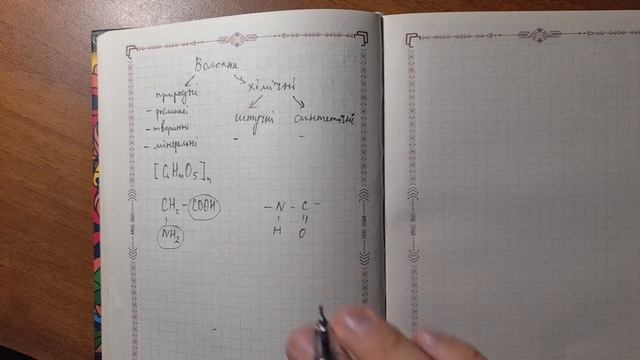 Волокна
природні
хімічні
- рослинні
- тваринні
- мінеральні
штучні
синтетичні
-
-
[C6H10O5]n
CH2 - COOH
NH2
- N - C -
H O